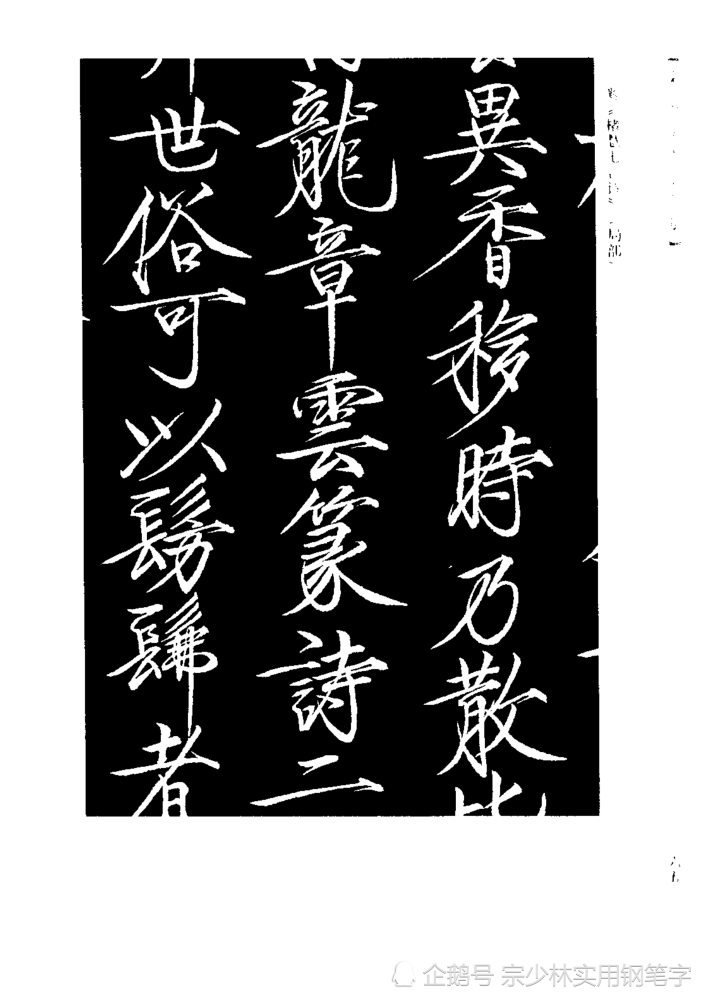 異香移時乃散
龍章雲篆詩二
世俗可以髣髴者
局部
企鹅号 宗少林实用钢笔字